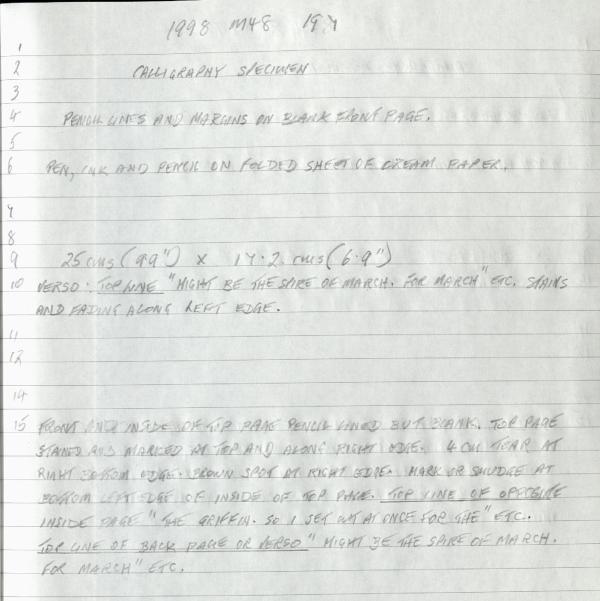 1998 M48 197
1
2 CALLIGRAPHY SPECIMEN
3
4 PENCIL LINES AND MARGINS ON BLANK FRONT PAGE.
5
6 PEN, INK AND PENCIL ON FOLDED SHEET OF CREAM PAPER.
7
8
9 25 cms (9.9") x 17.2 cms (6.9")
10 VERSO: TOP LINE "MIGHT BE THE SPIRE OF MARCH. FOR MARCH" ETC. STAINS
AND FADING ALONG LEFT EDGE.
11
12
14
15 FRONT AND INSIDE OF TOP PAGE PENCIL LINED BUT BLANK. TOP PAGE
STAINED AND MARKED AT TOP AND ALONG RIGHT EDGE. 4 CM TEAR AT
RIGHT BOTTOM EDGE. BROWN SPOT AT RIGHT EDGE. MARK OR SMUDGE AT
BOTTOM LEFT EDGE OF INSIDE OF TOP PAGE. TOP LINE OF OPPOSITE
INSIDE PAGE "THE GRIFFIN. SO I SET OUT AT ONCE FOR THE" ETC.
TOP LINE OF BACK PAGE OR VERSO "MIGHT BE THE SPIRE OF MARCH.
FOR MARCH" ETC.